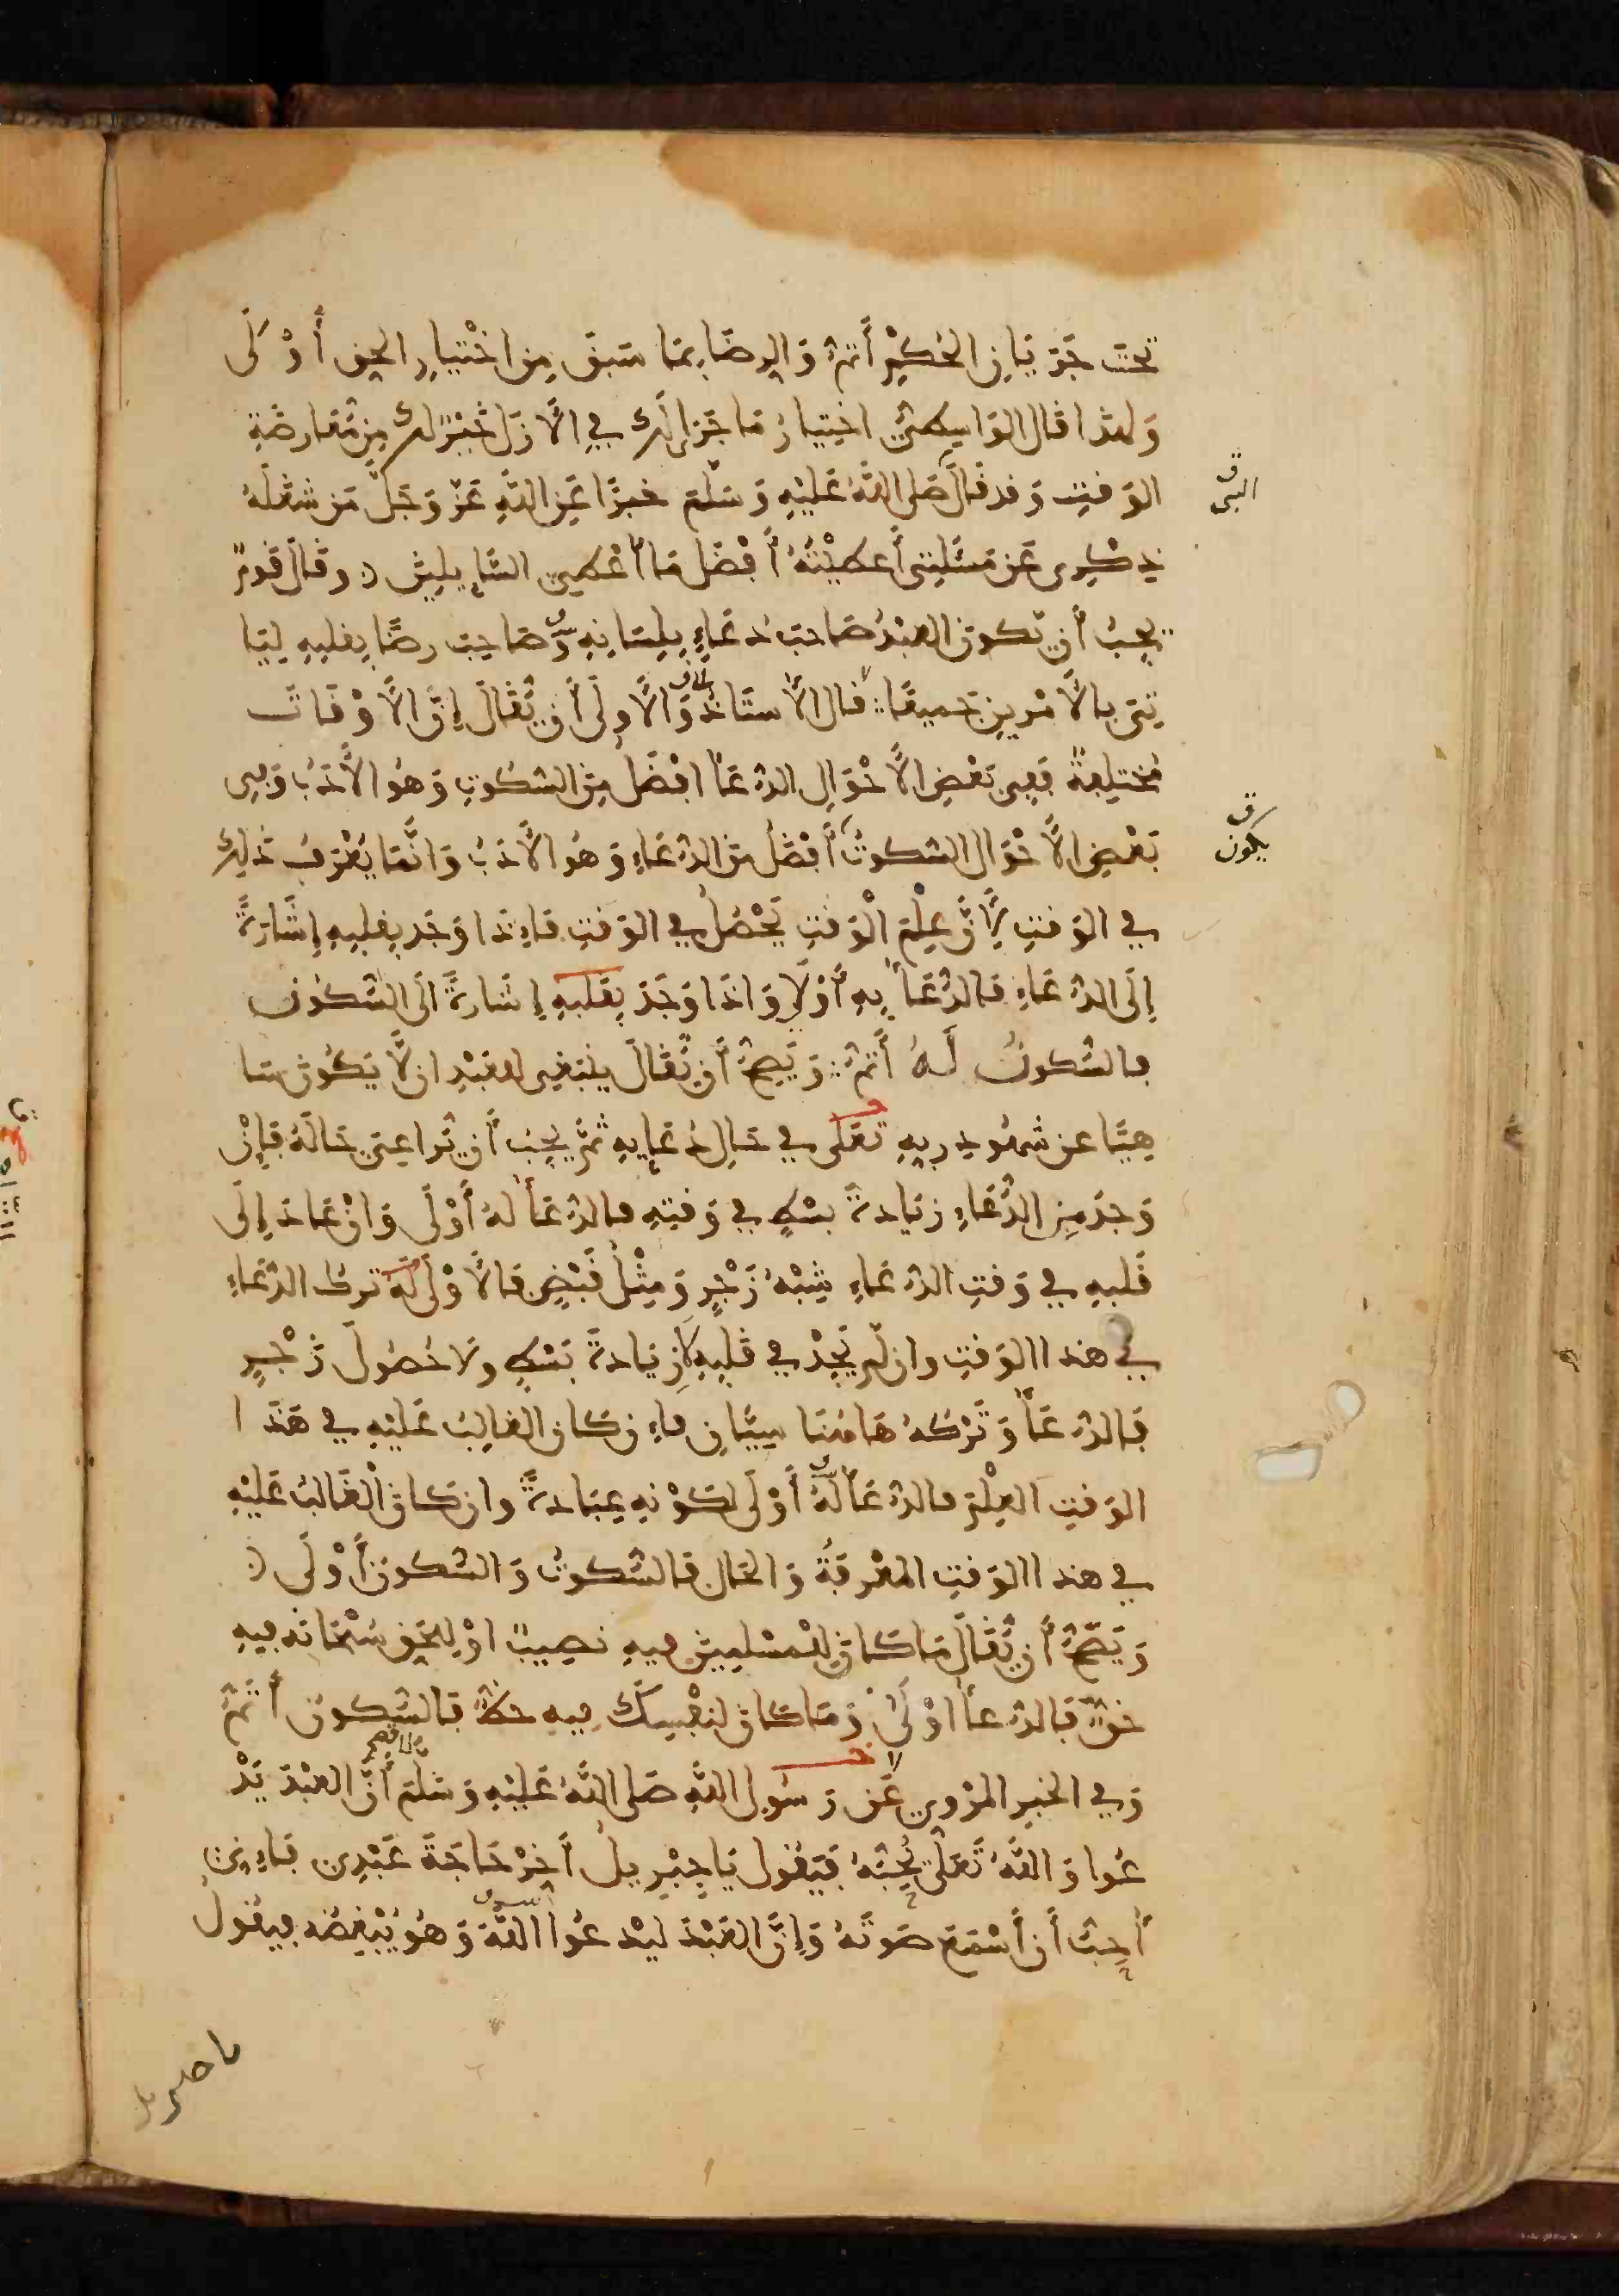 تحت جَرَيَانِ الحُكْمِ أَتَمُّ وَالرِضَا بِمَا سَبَقَ مِن اخْتيَارِ الحَقِ أَوْلَى
وَلهَذا قال الوَاسِطيُّ اختِيَارُ مَا جَرَى لَكَ فِي الأَزَلِ خَيْرٌ لك مِن مُعَارضَةِ
الوَقتِ وَقد قَالَ صَلى اللهُ عَلَيْهِ وَسَلَّمَ خبرًا عَنِ اللهِ عَزَّ وَجَلَّ مَن شَغَلَهُ
ذِكْرِى عَن مَسْئَلتِى أَعطَيْتُهُ أَفْضَلَ مَا أُعْطِي السَّايلِينَ وقَالَ قَومٌ
يَجِبُ أَن يَكونَ العَبْدُ صَاحبَ دُعَاءٍ بِلِسَانِهِ وَصَاحِبَ رِضًا بِقلبِهِ لِيَا
تِىَ بالأَمْرَينِ جَميعًا قال الأُستَاذُ وَالأَولَى أَن يُقَالَ إِنَّ الأَوْقَاتَ
مُختلِفةٌ فَفِي بَعْضِ الأَحْوَالِ الدُعَاءُ افْضَلُ مِنَ السُكُوتِ وَهُوَ الأَدَبُ وَفِي
بَعْضِ الأَحْوَالِ السُكوتُ أَفْضَلُ منَ الدُعَاءِ وَهُوَ الأَدَبُ وَانَّمَا يُعْرَفُ ذَلِكَ
فِي الوَقتِ لِأَنَّ عِلْمَ الْوَقتِ يَحْصُلُ فِي الوَقتِ فَإِذَا وَجَد بِقَلبِهِ إِشَارَةً
إِلَى الدُعَاءِ فَالدُعَاءُ بِهِ أَوْلَى وَاذَا وَجَدَ بِقَلبِهِ إِشَارَةً الَى السُّكُوتِ
فالسُكوتُ لَهُ أَتَمُّ وَيَصِحُّ أَن يُقَالَ يَنبَغِي للعَبْدِ ان لَّا يَكُونَ سَا
هِيًا عن شهُودِ رَبِهِ تعَلى فِي حَالِ دُعَايِهِ ثُمَّ يَجِبُ أَن يُرَاعِيَ حَالَهُ فَإِنْ
وَجَدَ مِنَ الدُّعَاءِ زيَادةَ بَسْطٍ فِي وَقتِهِ فالدُعَاءُ لهُ أَوْلَى وَانْ عَادَ إِلَى
قَلبِهِ فِي وَقتِ الدُعَاءِ شِبْهُ زَجْرٍ وَمِثْلُ قَبْضٍ فَالأَوْلَى لَهُ تركُ الدُعَاءِ
فِي هَذا الوَقتِ وان لَم يَجِدْ فِي قَلبِهِ لا زِيَادةَ بَسْطٍ ولا حُصُولَ زَجْرٍ
فَالدُعَاءُ وَتَرْكُهُ هَاهُنَا سِيَّانِ فإِن كَانَ الغَالِبُ عَلَيْهِ فِي هَذَا
الوَقتِ العِلْمَ فالدُعَاءُ لَهُ أَوْلَى لكَوْنِهِ عِبَادةً وان كَانَ الغَالبُ عَلَيْهِ
فِي هذا الوَقتِ المَعْرفَةُ وَالحَالُ فَالسُكوتُ وَالسُكونُ أَوْلَى
وَيَصِحُّ أَن يُقَالَ مَا كَانَ لِلمُسْلمِينَ فِيهِ نَصِيبٌ اوْ لِلحَقِ سُبْحَانَه فِيهِ
حَقٌّ فَالدُعَاءُ اوْلَى وَمَا كَانَ لِنَفْسِكَ فِيهِ حَظٌّ فَالسُكُوتُ أَتَمُّ
وَفِي الخبرِ المَرْوِي عَن رَسُولِ اللهِ صَلى اللهُ عَلَيْهِ وَسَلَّمَ أَنَّ العَبْدَ يَدْ
عُوا وَاللهُ تَعَلى يُحِبُّهُ فَيَقُول يَا جِبْرِيلُ أَخِّرْ حَاجَةَ عَبْدِي فَإِنِّي
أُحِبُّ أَن أَسْمَعَ صَوتَهُ وَإِنَّ العَبْدَ ليَدْعُوا اللهَ وَهُوَ يُبْغِضُهُ فيقُولُ
النبي
يكون